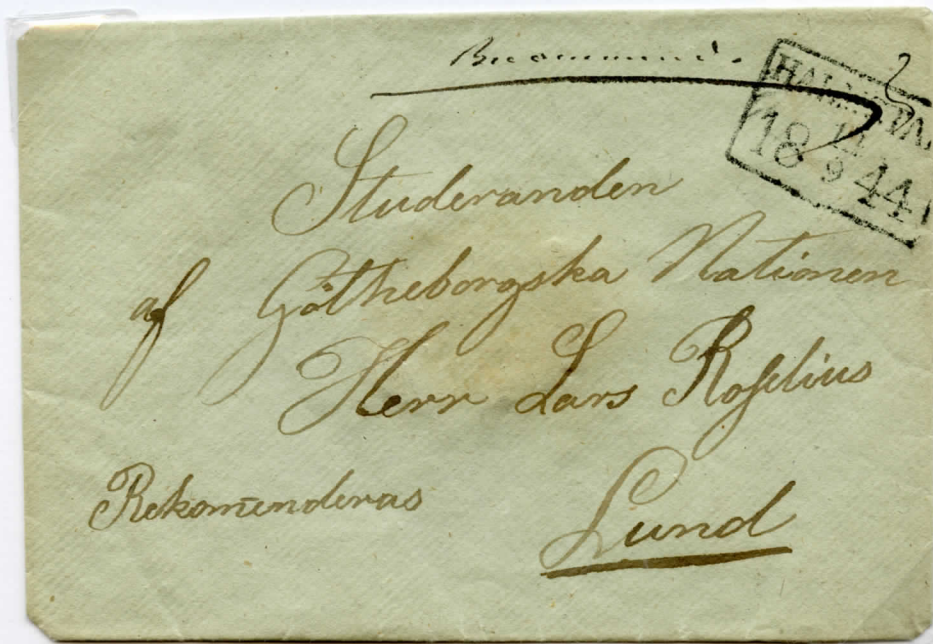 HALMSTAD
18 44
9
Studeranden
af Götheborgska Nationen
Herr Lars Roſelius
Rekom̄enderas
Lund